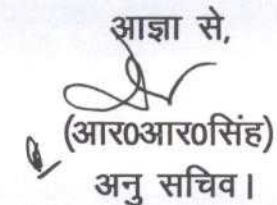 आज्ञा से,
(आर0आर0सिंह)
अनु सचिव।